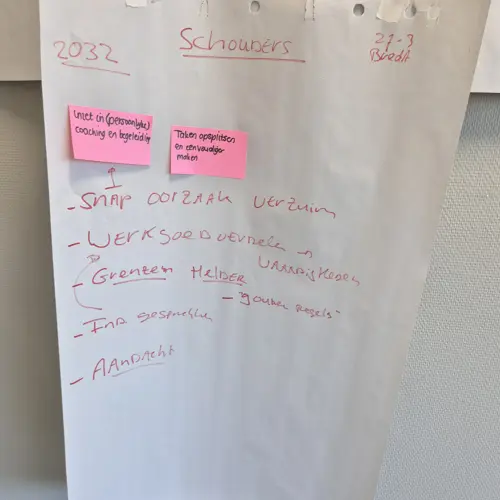 2032
SCHOUDERS
27-3
Inzet in (persoonlijke)
coaching en begeleiding
Taken opsplitsen
en eenvoudiger
maken
- SNAP OORZAAK VERZUIM
- WERK GOED VERDELEN
VAARDIGHEDEN
- Grenzen HELDER
- "gouden regels"
- IND gesprekken
- AANDACHT